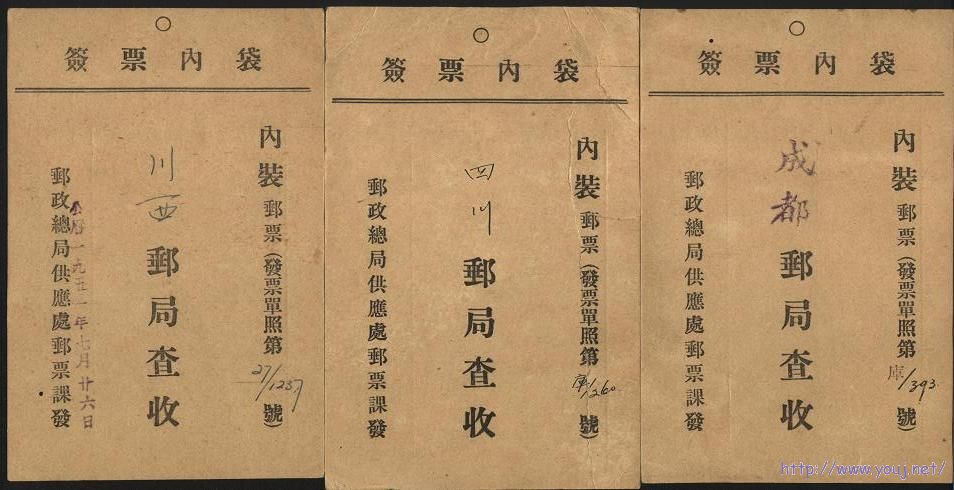 袋內票簽
內裝郵票(發票單照第27/1237號)
川西郵局查收
郵政總局供應處郵票課發
公曆一九五一年七月廿六日
袋內票簽
內裝郵票(發票單照第庫/1260號)
四川郵局查收
郵政總局供應處郵票課發
袋內票簽
內裝郵票(發票單照第庫/393號)
成都郵局查收
郵政總局供應處郵票課發
http://www.youj.net/